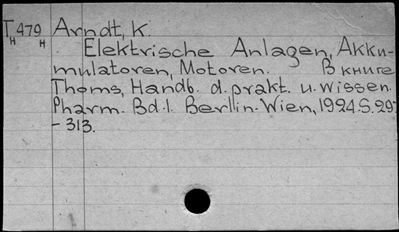 T 479 Arndt, K.
H H
Elektrische Anlagen, Akku-
mulatoren, Motoren. В книге
Thoms, Handb. d. prakt. u. wissen.
Pharm. Bd. 1. Berlin-Wien, 1924. S. 297
- 313.